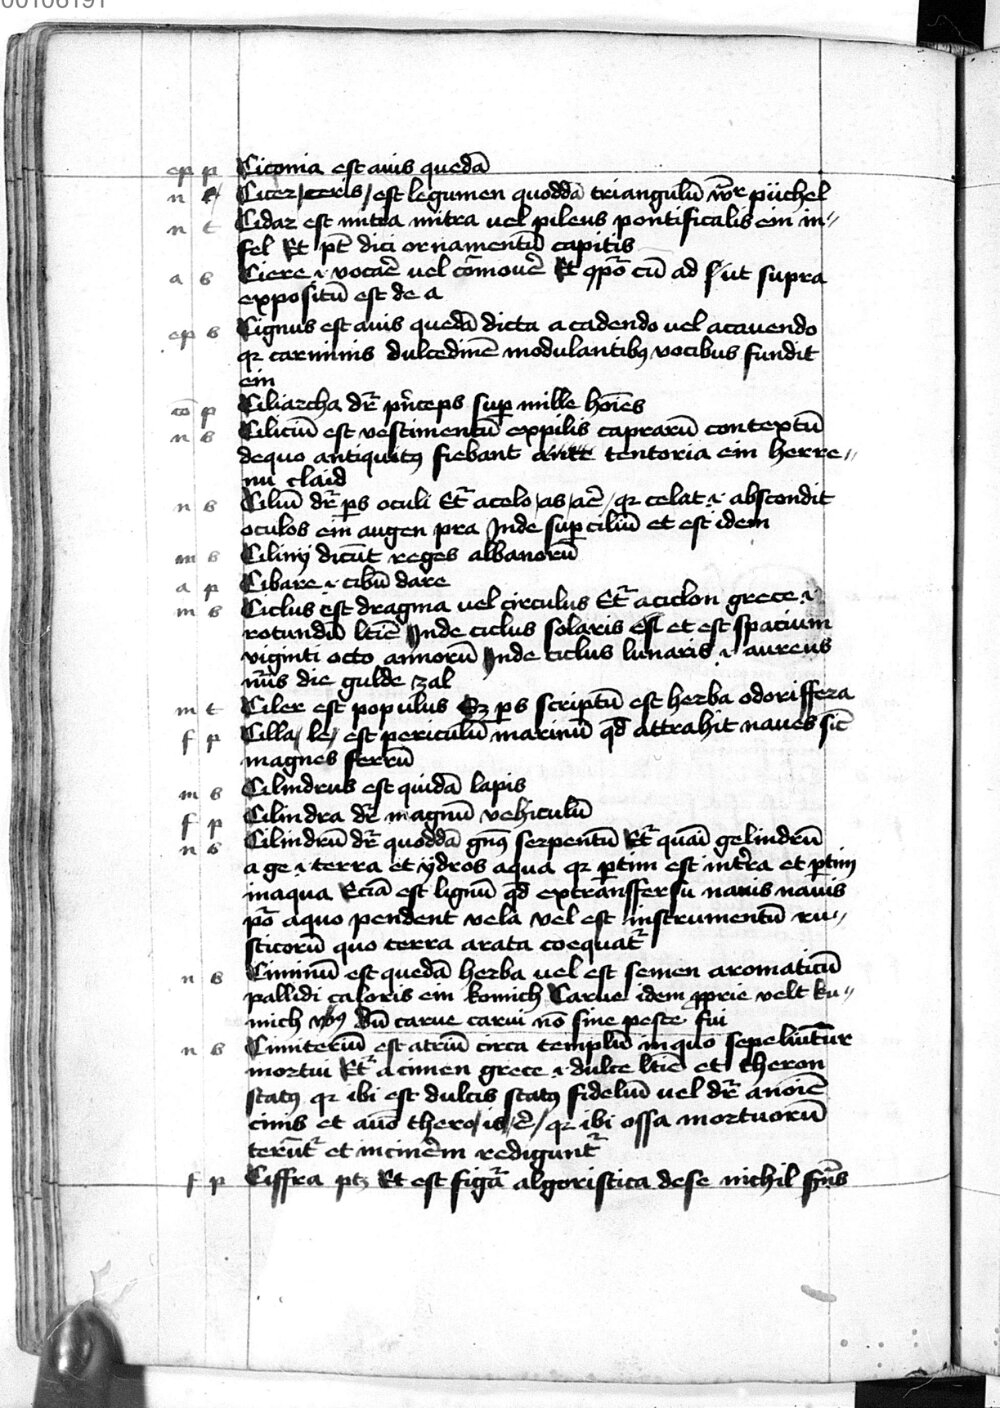 00106191
ep p Ciconia est auis quedā
n t Cicer /ceris/ est legumen quoddā triangulū püchel
n t Cidar est mitra mitra uel pileus pontificalis ein in〃
fel Et pt̄ dici ornamentū capitis
a s Ciere .i. vocar̄e uel cōmouer̄e Et cū ad sicut supra
expositū est de a
ep s Cignus est auis quedā dicta a cadendo uel acauendo
qr carminis dulcedinē modulantibꝰ vocibus fundit
ein
cō p Ciliarcha dr̄ prīceps sup mille hoīes
n s Ciliciū est vestimentū expilis caprarū contextū
dequo antiquitꝰ fiebant tentoria ein herre〃
nu claid
n s Ciliū dr̄ ps oculi Et̄ acelo /as /ar̄e/ qr celat .i. abscondit
oculos ein augen pra Inde supciliū et est idem
m s Cilinij dicūt reges albanorū
a p Cibare .i. cibū dare
m s Ciclus est dragma uel circulus Et̄ aciclon grece .i.
rotundū ltīe Inde ciclus solaris est et est spacium
viginti octo annorū Inde ciclus lunaris .i. aureus
nūs die gulde zal
m t Ciler est populus Sꝫ ps scriptū est herba odoriffera
f p Cilla /le/ est periculū marinū qd̄ attrahit naues sic̄
magnes ferrū
m s Cilindrus est quidā lapis
f p Cilindra dr̄ magnū vehiculū
n s Cilindrū dr̄ quoddā gnꝰ serpentū Et̄ quasi gelindrū
a ge .i. terra et ydros aqua qr ptim est intr̄a et ptim
inaqua Eciā est lignū qd̄ extransffersu nauis nauis
aquo pendent vela vel est instrumentū ru〃
sticorū quo terra arata coequat̄
n s Ciminū est quedā herba uel est semen aromaticū
pallidi caloris ein komich Carue idem pprie velt ku〃
mich Dū carue carui nō sine peste fui
n s Cimiteriū est atriū circa templū inquo sepeliūtur
mortui Et̄ a cimen grece .i. dulce ltīe et theron
statꝰ qr ibi est dulcis statꝰ fideliū uel dr̄
cinis et thero /is/ qr ibi ossa mortuorū
terūt̄ et incinēm redigunt̄
f p Ciffra ptꝫ Et est figā algoristica dese nichil